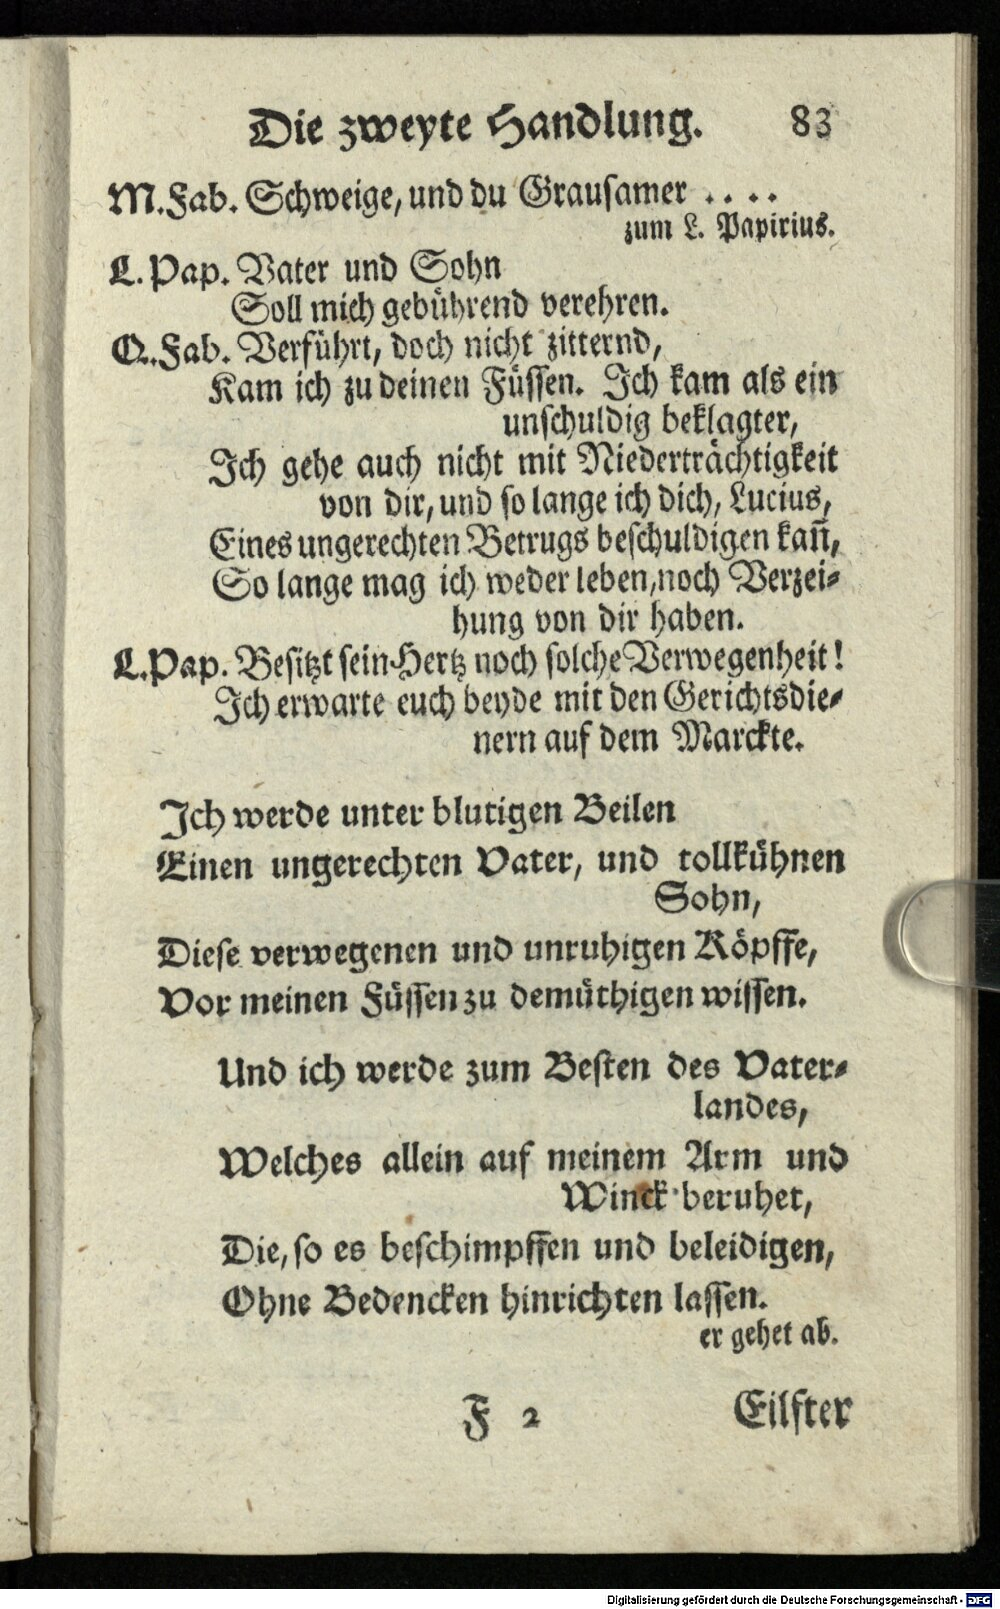 Die zweyte Handlung. 83
M. Fab. Schweige, und du Grausamer . . . .
zum L. Papirius.
L. Pap. Vater und Sohn
Soll mich gebührend verehren.
Q. Fab. Verführt, doch nicht zitternd,
Kam ich zu deinen Füssen. Ich kam als ein
unschuldig beklagter,
Ich gehe auch nicht mit Niederträchtigkeit
von dir, und so lange ich dich, Lucius,
Eines ungerechten Betrugs beschuldigen kan̄,
So lange mag ich weder leben, noch Verzei-
hung von dir haben.
L. Pap. Besitzt sein Hertz noch solche Verwegenheit!
Ich erwarte euch beyde mit den Gerichtsdie-
nern auf dem Marckte.
Ich werde unter blutigen Beilen
Einen ungerechten Vater, und tollkühnen
Sohn,
Diese verwegenen und unruhigen Köpffe,
Vor meinen Füssen zu demüthigen wissen.
Und ich werde zum Besten des Vater-
landes,
Welches allein auf meinem Arm und
Winck beruhet,
Die, so es beschimpffen und beleidigen,
Ohne Bedencken hinrichten lassen.
er gehet ab.
F 2 Eilfter
Digitalisierung gefördert durch die Deutsche Forschungsgemeinschaft - DFG